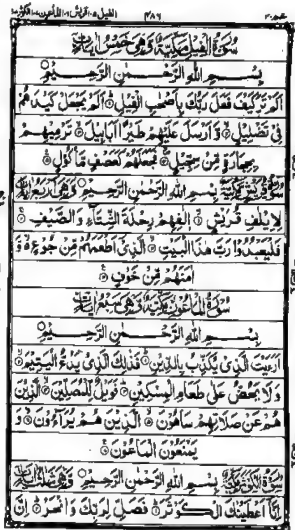 الفيل ١٠٥ قريش ١٠٦ الماعون ١٠٧ الكوثر ١٠٨ ٤٨٦ عم ٣٠
سُوْرَةُ الْفِيْلِ مَكِّيَّةٌ وَّهِيَ خَمْسُ اٰيَاتٍ
بِسْمِ اللهِ الرَّحْمٰنِ الرَّحِيْمِ
اَلَمْ تَرَ كَيْفَ فَعَلَ رَبُّكَ بِاَصْحٰبِ الْفِيْلِ اَلَمْ يَجْعَلْ كَيْدَهُمْ
فِيْ تَضْلِيْلٍ وَّاَرْسَلَ عَلَيْهِمْ طَيْرًا اَبَابِيْلَ تَرْمِيْهِمْ
بِحِجَارَةٍ مِّنْ سِجِّيْلٍ فَجَعَلَهُمْ كَعَصْفٍ مَّاْكُوْلٍ
سُوْرَةُ قُرَيْشٍ مَكِّيَّةٌ بِسْمِ اللهِ الرَّحْمٰنِ الرَّحِيْمِ وَّهِيَ اَرْبَعُ اٰيَاتٍ
لِاِيْلٰفِ قُرَيْشٍ اٖلٰفِهِمْ رِحْلَةَ الشِّتَآءِ وَالصَّيْفِ
فَلْيَعْبُدُوْا رَبَّ هٰذَا الْبَيْتِ الَّذِيْ اَطْعَمَهُمْ مِّنْ جُوْعٍ وَّ
اٰمَنَهُمْ مِّنْ خَوْفٍ
سُوْرَةُ الْمَاعُوْنِ مَكِّيَّةٌ وَّهِيَ سَبْعُ اٰيَاتٍ
بِسْمِ اللهِ الرَّحْمٰنِ الرَّحِيْمِ
اَرَءَيْتَ الَّذِيْ يُكَذِّبُ بِالدِّيْنِ فَذٰلِكَ الَّذِيْ يَدُعُّ الْيَتِيْمَ
وَلَا يَحُضُّ عَلٰى طَعَامِ الْمِسْكِيْنِ فَوَيْلٌ لِّلْمُصَلِّيْنَ الَّذِيْنَ
هُمْ عَنْ صَلَاتِهِمْ سَاهُوْنَ الَّذِيْنَ هُمْ يُرَآءُوْنَ وَ
يَمْنَعُوْنَ الْمَاعُوْنَ
سُوْرَةُ الْكَوْثَرِ مَكِّيَّةٌ بِسْمِ اللهِ الرَّحْمٰنِ الرَّحِيْمِ وَّهِيَ ثَلٰثُ اٰيَاتٍ
اِنَّا اَعْطَيْنٰكَ الْكَوْثَرَ فَصَلِّ لِرَبِّكَ وَانْحَرْ اِنَّ